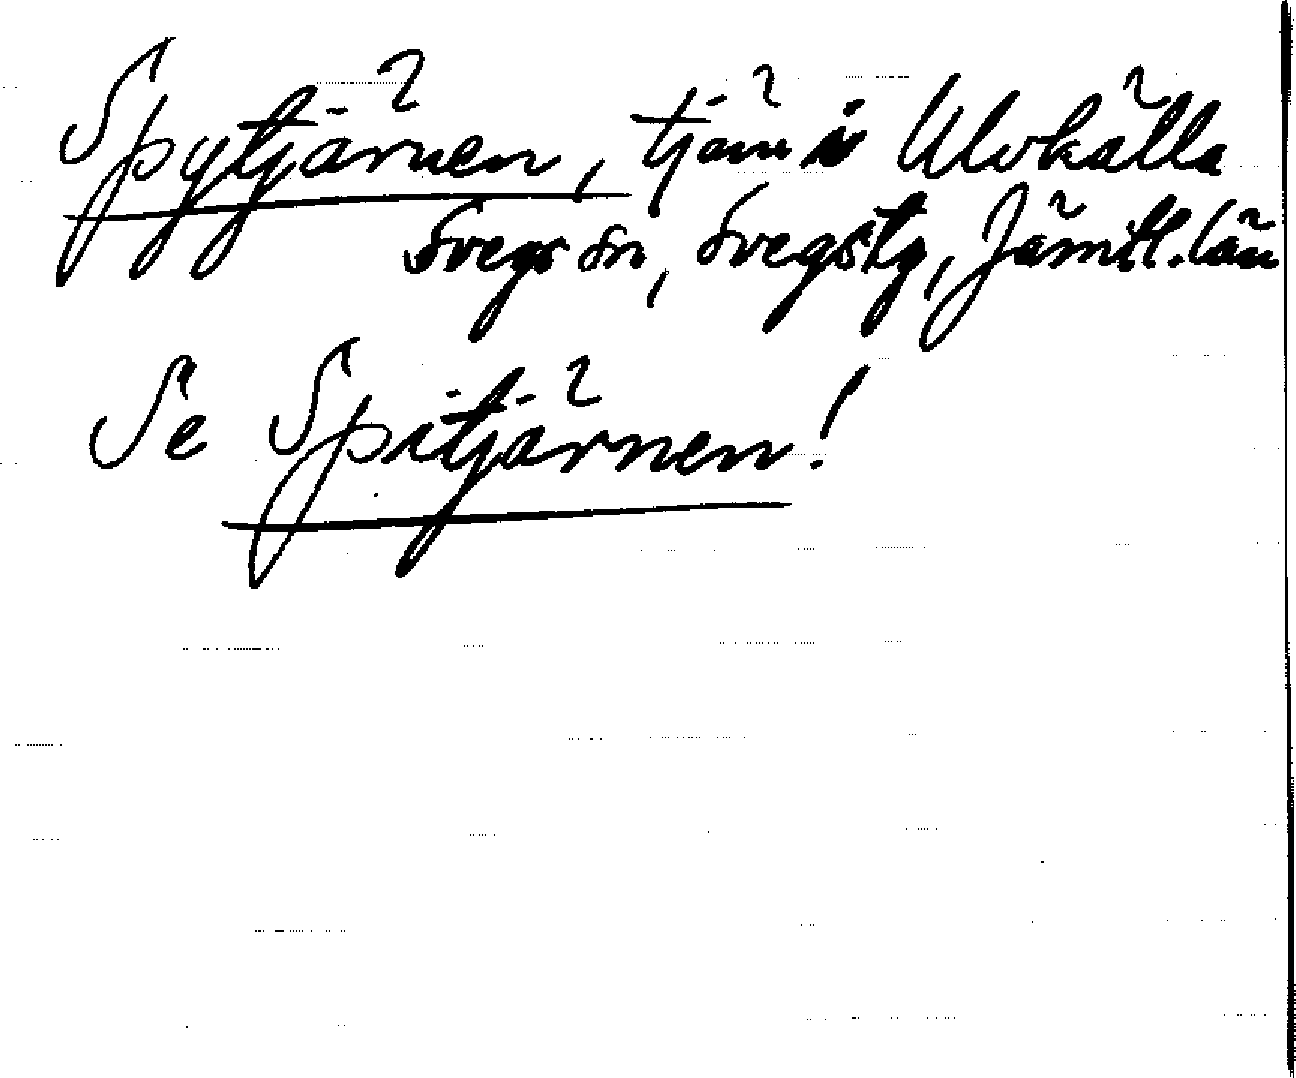 Spytjärnen, tjärn i Ulvkälla
Svegs sn, Svegs tg, Jämtl. län
Se Spitjärnen!